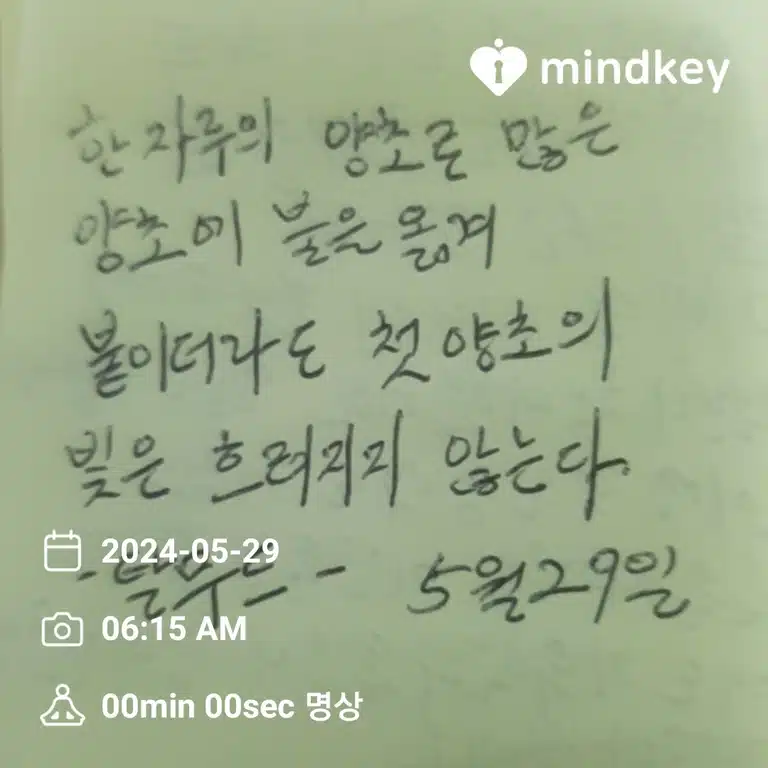 mindkey
한 자루의 양초로 많은
양초에 불을 옮겨
붙이더라도 첫 양초의
빛은 흐려지지 않는다.
2024-05-29
- 탈무드 - 5월29일
06:15 AM
00min 00sec 명상